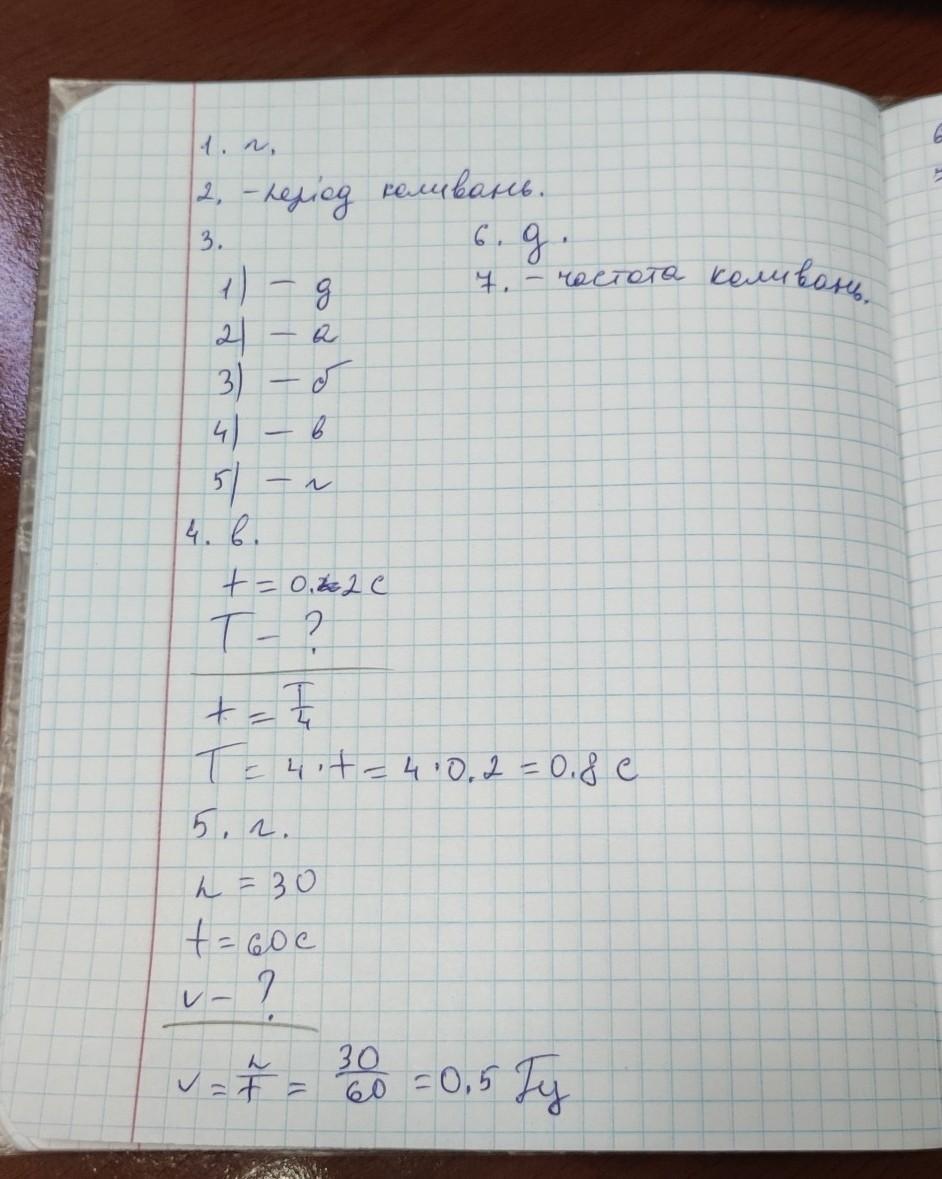 1. г.
2. - період коливань.
3.
1) - д
2) - а
3) - б
4) - в
5) - г
4. в.
t = 0.2 с
T - ?
t = T/4
T = 4 · t = 4 · 0.2 = 0.8 с
5. г.
n = 30
t = 60 с
ν - ?
ν = n/t = 30/60 = 0.5 Гц
6. д.
7. - частота коливань.
6